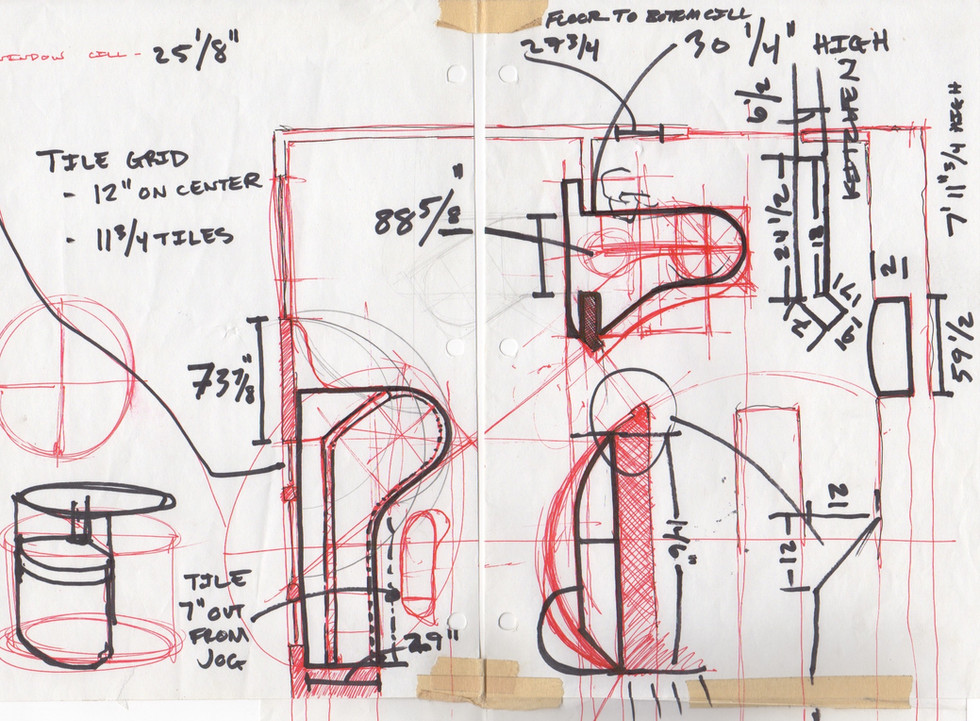 FLOOR TO BOTTOM CILL
29 3/4
30 1/4" HIGH
WINDOW CILL - 25 1/8"
KITCHEN
6 1/2
7' 11" 3/4 HIGH
TILE GRID
- 12" ON CENTER
- 11 3/4 TILES
88 5/8"
24 1/2
18
21
59 1/2
73 7/8"
12
12
TILE
7" OUT
FROM
JOG
29"